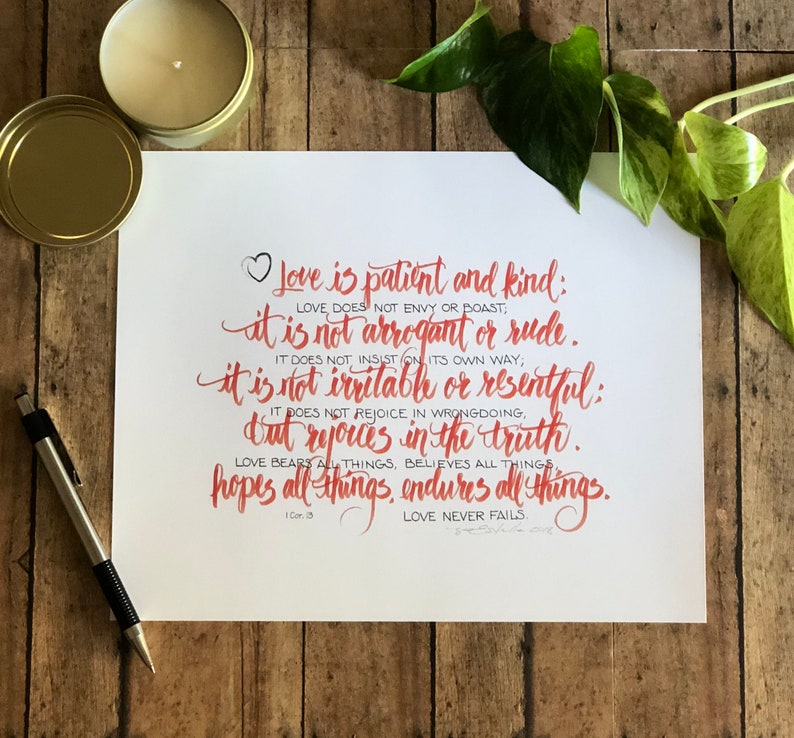 Love is patient and kind;
LOVE DOES NOT ENVY OR BOAST;
it is not arrogant or rude.
IT DOES NOT INSIST ON ITS OWN WAY;
it is not irritable or resentful;
IT DOES NOT REJOICE IN WRONGDOING,
but rejoices in the truth.
LOVE BEARS ALL THINGS, BELIEVES ALL THINGS,
hopes all things, endures all things.
1 Cor. 13 LOVE NEVER FAILS.